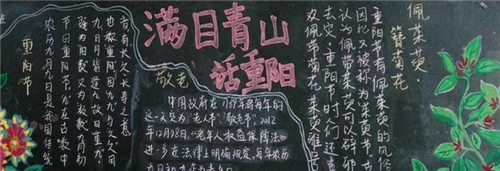 满目青山
话重阳
敬老
重阳节
农历九月九日是我国传统
节日重阳节九在古数中
九日月皆逢九故曰重九
也叫重阳因九九与久久同
音有长久长寿之意
中国政府在1989年将每年的
这一天定为“老人节”“敬老节”。2012
年12月28日,《老年人权益保障法》
进一步在法律上明确规定,每年农历
佩茱萸
簪菊花
重阳节有佩茱萸的风俗
因此又被称为茱萸节古
认为佩带茱萸可以辟邪
去灾,重阳节时人们还喜
欢佩带菊花茱萸雅号